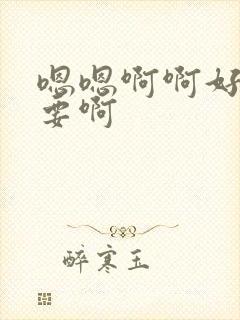 嗯嗯啊啊好
要啊
醉寒玉